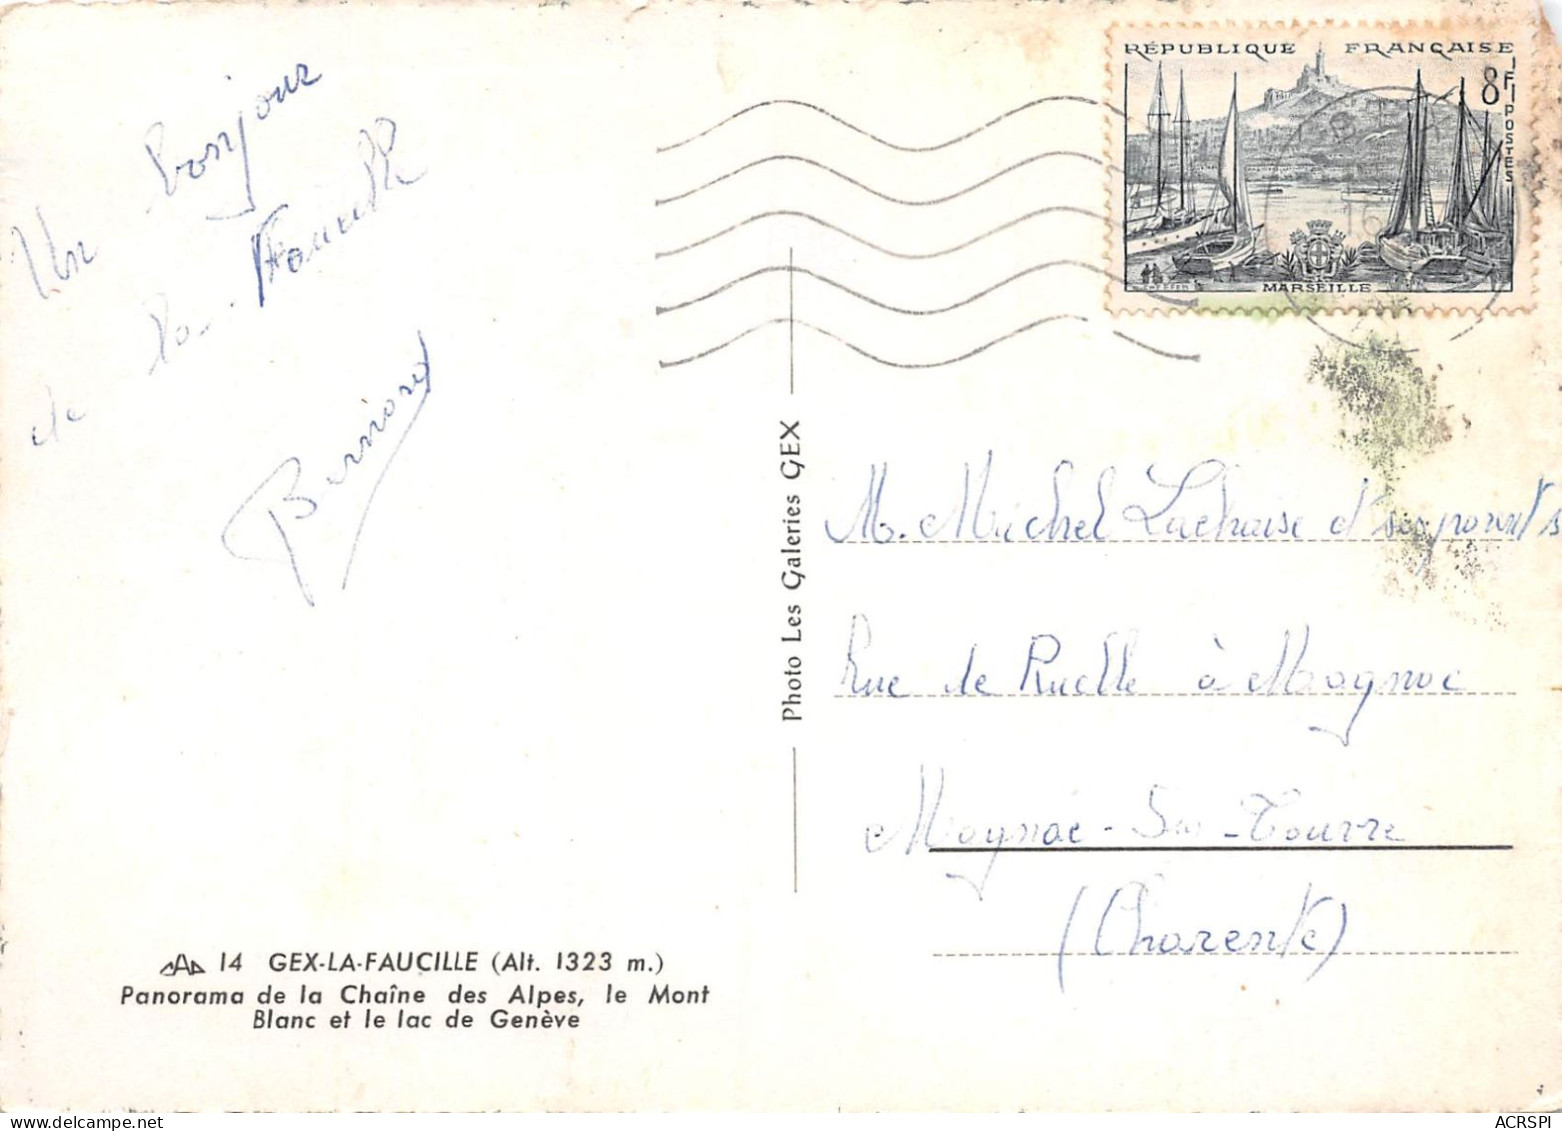 Un bonjour
de la Faucille
Bernard
14 GEX-LA-FAUCILLE (Alt. 1323 m.)
Panorama de la Chaîne des Alpes, le Mont
Blanc et le lac de Genève
Photo Les Galeries GEX
RÉPUBLIQUE FRANÇAISE
8F
POSTES
MARSEILLE
16
M. Michel Lachaise
Rue de Ruelle à Magnac
Magnac-Sur-Touvre
(Charente)
ACRSPI